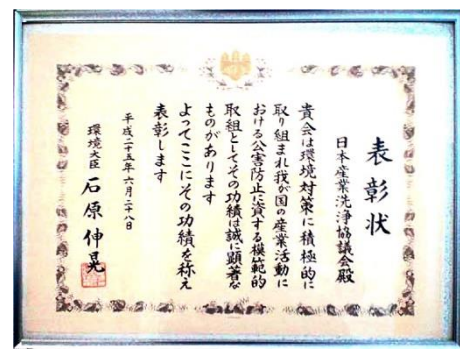 表彰状
日本産業洗浄協議会殿
貴会は環境対策に積極的に
取り組まれ我が国の産業活動に
おける公害防止に資する模範的
取組としてその功績は誠に顕著な
ものがあります
よってここにその功績を称え
表彰します
平成二十五年六月二十八日
環境大臣 石原伸晃